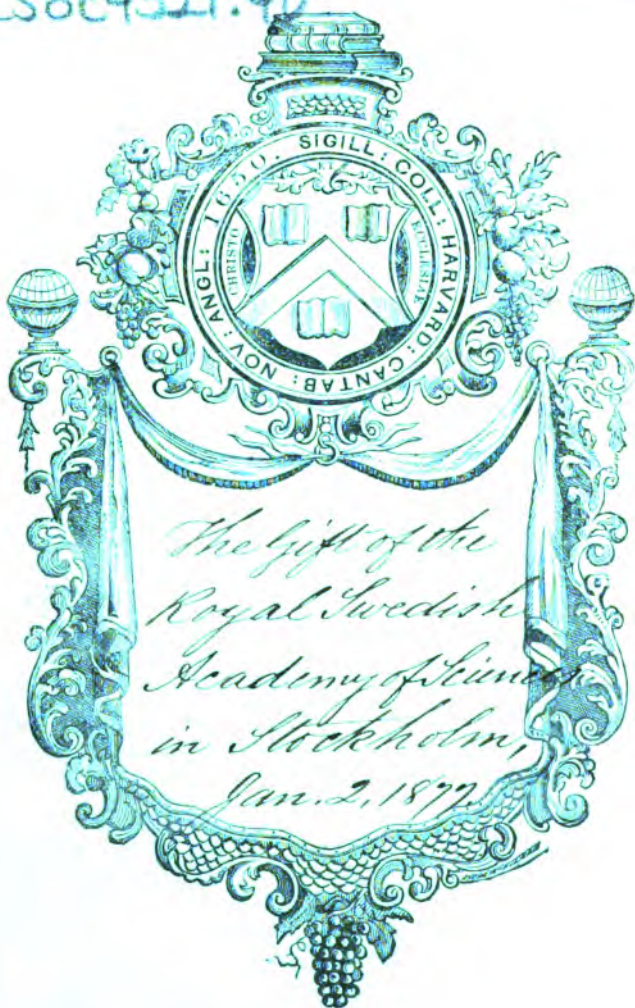 LSoc4521.40
SIGILL: COLL: HARVARD: CANTAB: NOV: ANGL: 1650.
CHRISTO
ECCLESIAE
The Gift of the
Royal Swedish
Academy of Sciences
in Stockholm,
Jan. 2, 1877.